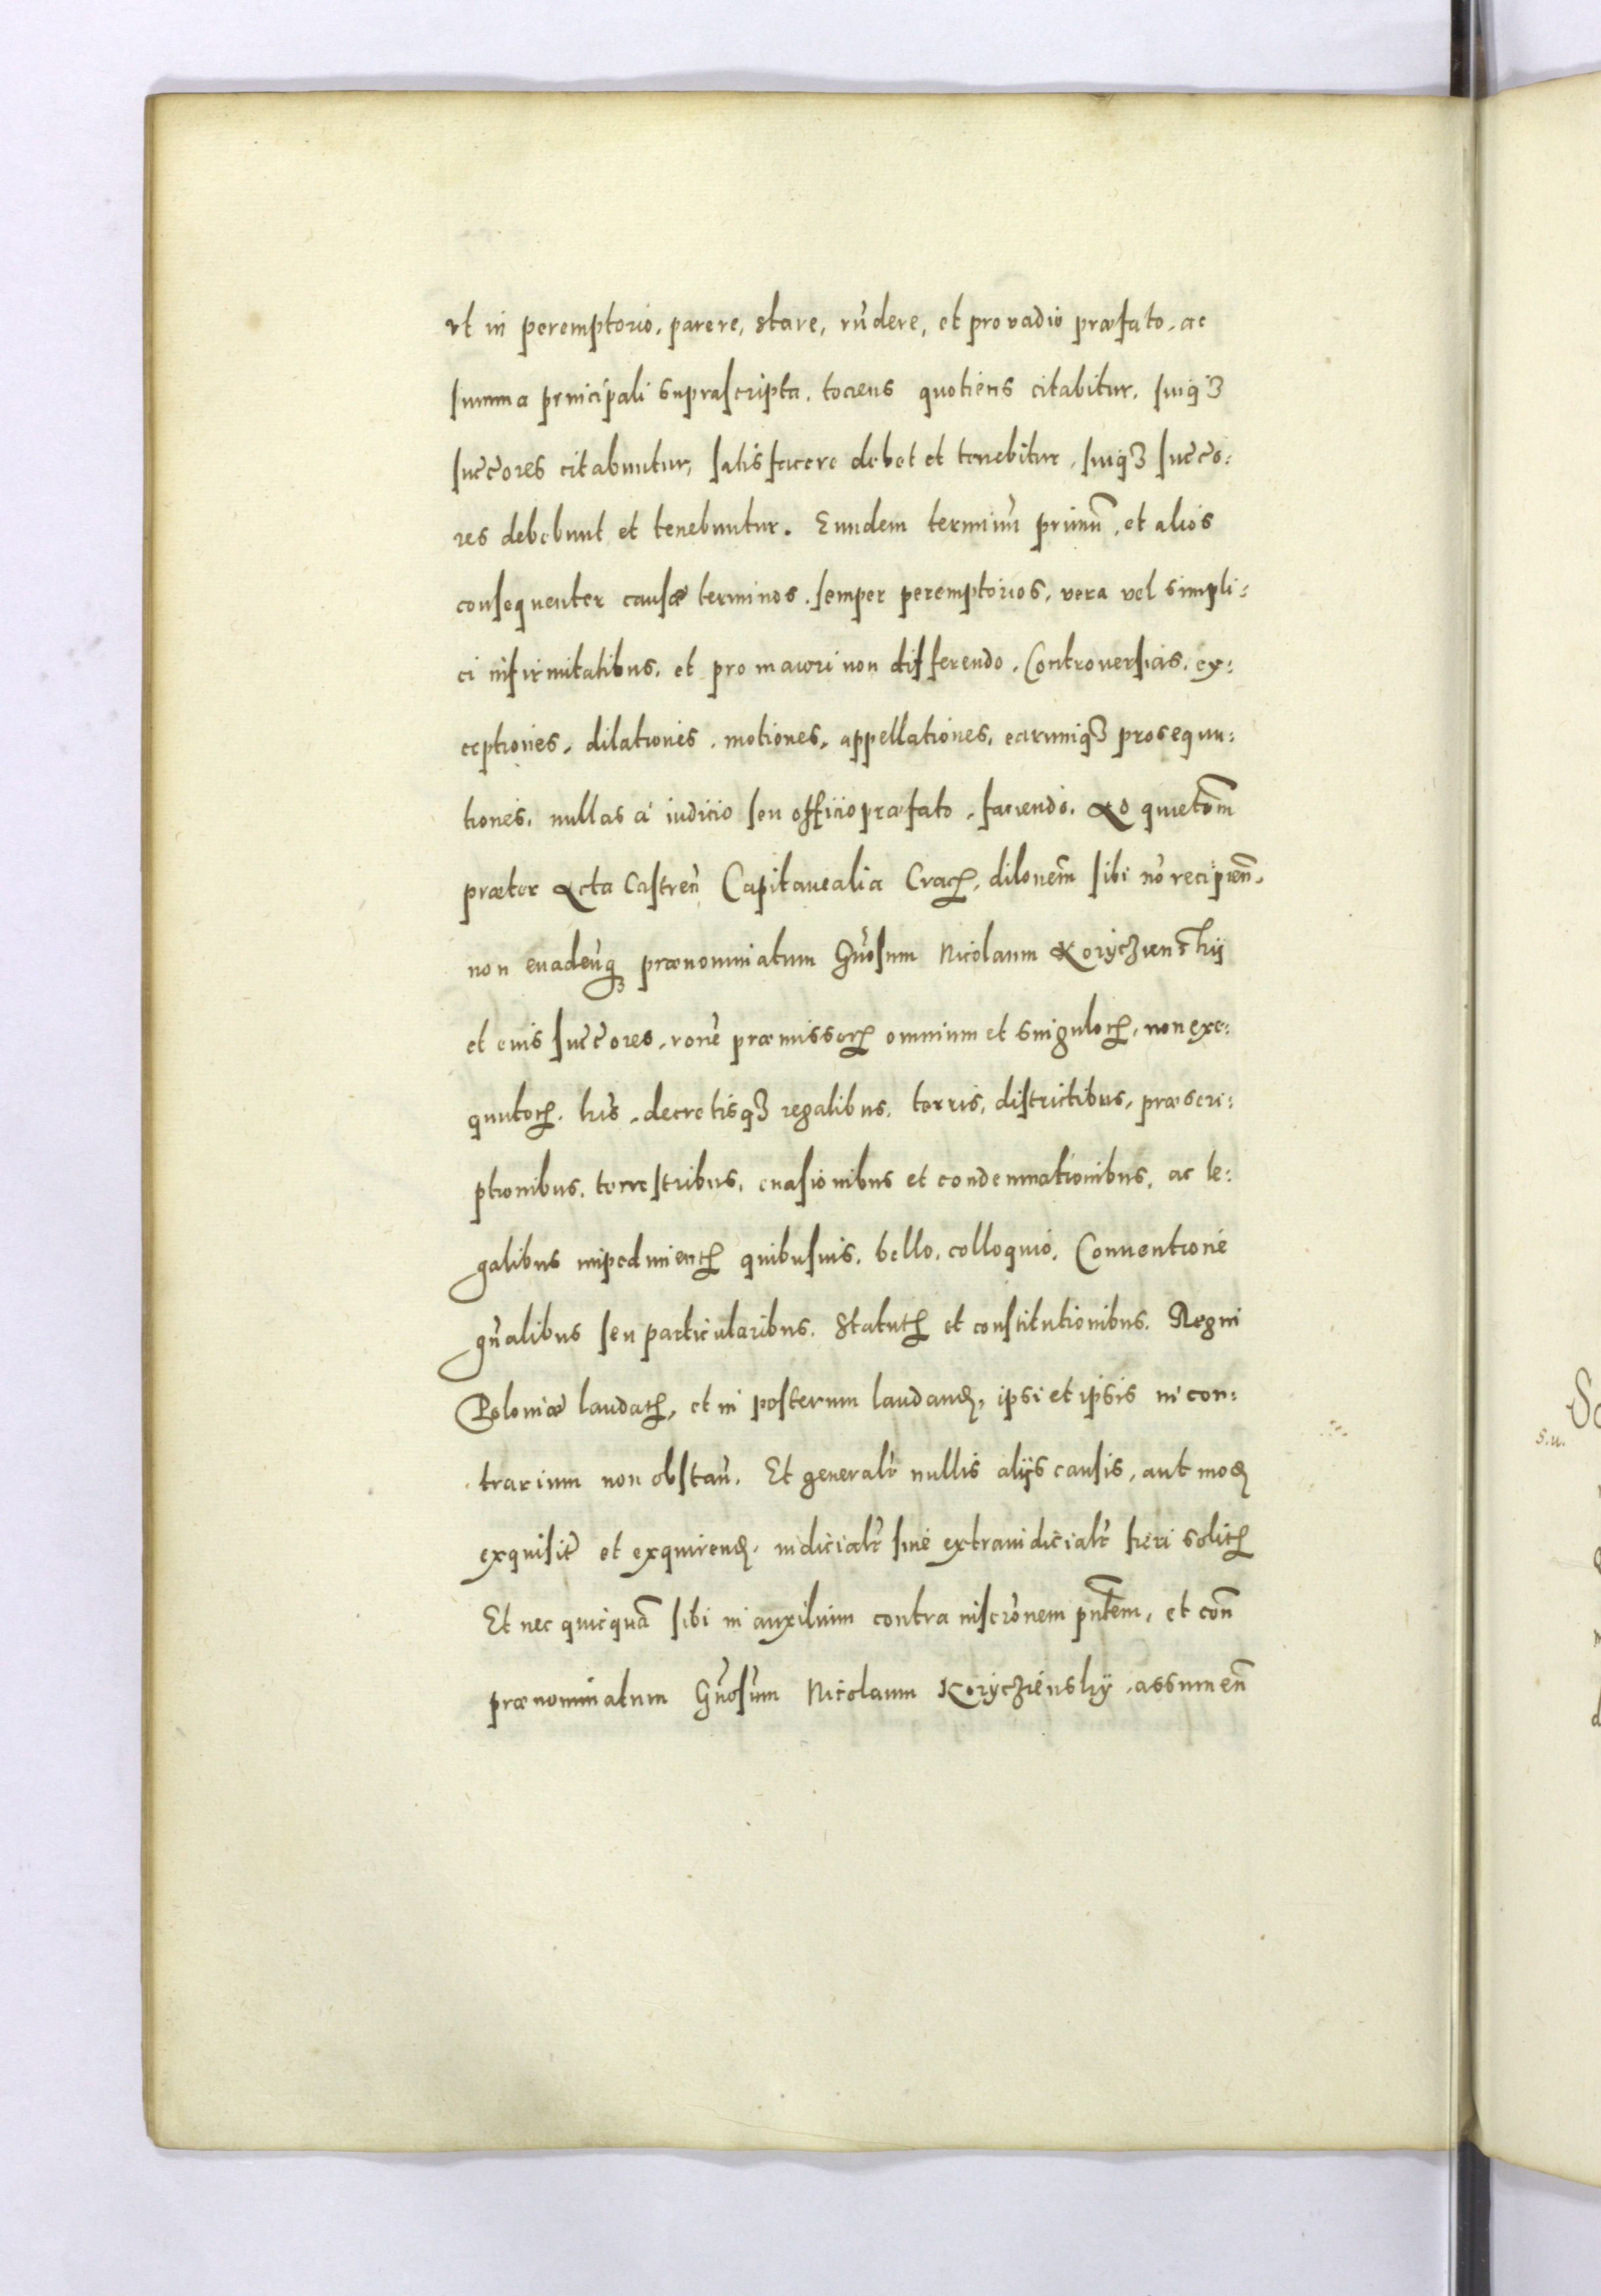 vt in peremptorio, parere, stare, rñdere, et pro vadio præfato, ac
summa principali suprascripta, tociens quotiens citabitur, suiq3
succ̃ores citabuntur, satisfacere debet et tenebitur, suiq3 succ̃o:
res debebunt et tenebuntur. Eundem terminũ primũ, et alios
consequenter causæ terminos, semper peremptorios, vera vel simpli:
ci infirmitatibus, et pro maiori non differendo, Controuersias, ex:
ceptiones, dilationes, motiones, appellationes, earumq3 prosequu:
tiones, nullas à iudicio seu officio præfato, faciendo, Ad quietõm
præter Acta Castreñ Capitanealia Cracꝝ, dilonem̃ sibi nõ recipieñ,
non euadeñq3 prænominatum Gñosum Nicolaum Koryczienskÿ
et eius succ̃ores, rone͂ præmissorꝝ omnium et singulorꝝ, non exe:
quutorꝝ, lrĩs, decretisq3 regalibus, terris, districtibus, præscri:
ptionibus, terrestribus, euasionibus et condemnationibus, ac le:
galibus impedimentꝝ quibusuis, bello, colloquio, Conuentione
gñalibus seu particularibus, Statutꝝ et constitutionibus, Regni
Poloniæ laudatꝝ, et in posterum laudandꝝ, ipsi et ipsis in con:
trarium non obstañ. Et generalr̃ nullis alÿs causis, aut modꝝ
exquisit̃ et exquirendꝝ, iudicialr̃ siue extraiudicialr̃ fieri solitꝝ
Et nec quicquã sibi in auxilium contra inscrõnem pñtem, et coñ
prænominatum Gñosum Nicolaum Korycziénskÿ, assumeñ
S.u.